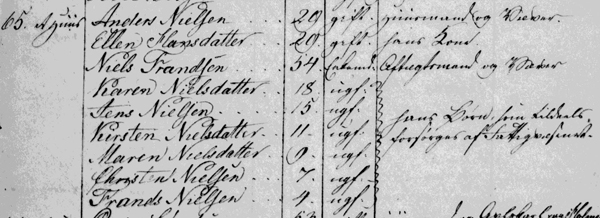 65. A Huus Anders Nielsen 29. gift. Huusmand og Væver.
Ellen Hansdatter 29. gift. hans Kone
Niels Frandsen 54. Enkemd. Aftægtsmand og Væver
Karen Nielsdatter 18. ugf.
Jens Nielsen 15. ugf.
Kirsten Nielsdatter 11. ugf. hans Børn, som tildeels
Maren Nielsdatter 9. ugf. forsørges af Fattigvæsenet.
Christen Nielsen 7. ugf.
Frands Nielsen 4. ugf.